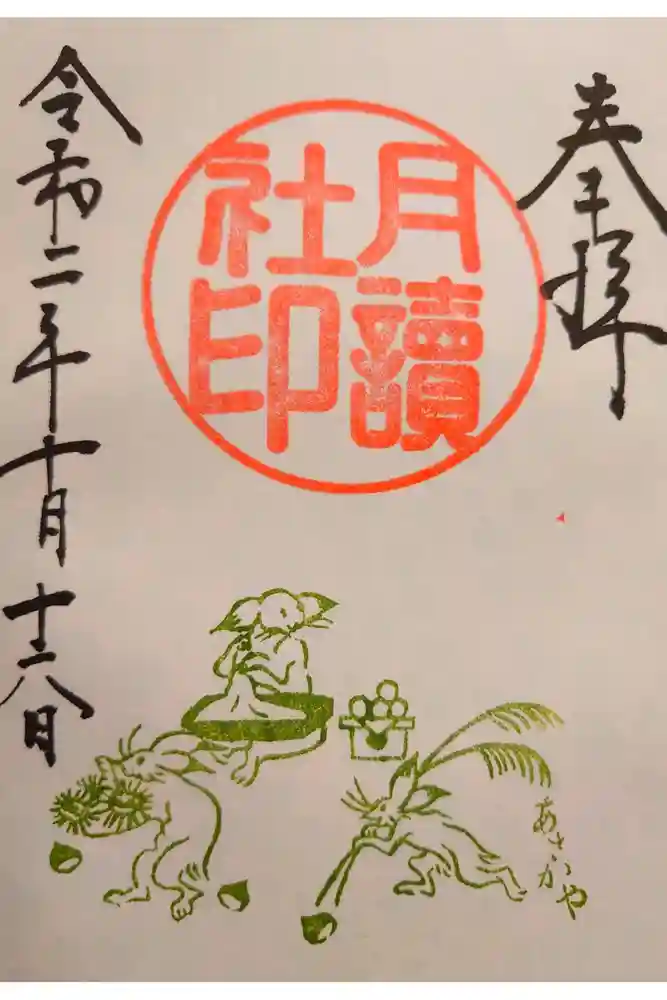 奉拝
月讀
社印
令和二年十月十六日
あさかや